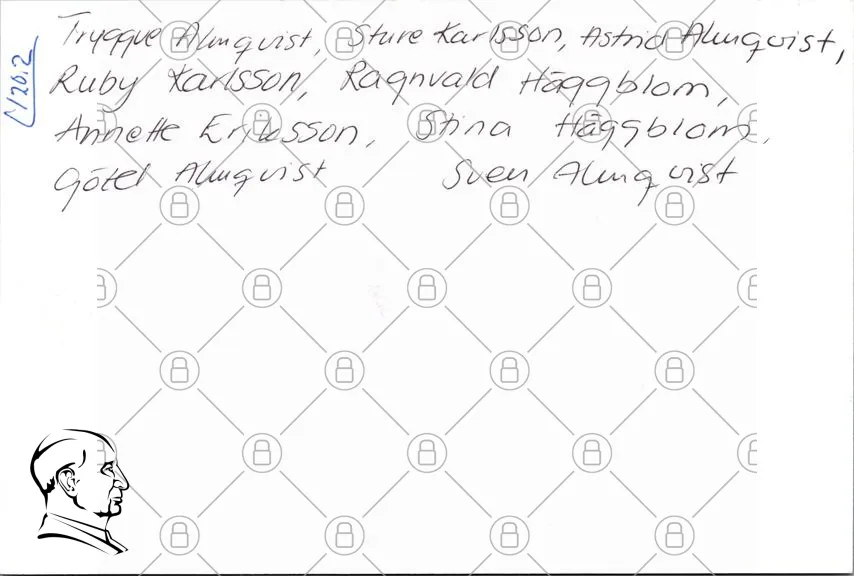 Tryggve Almqvist, Sture Karlsson, Astrid Almqvist,
Ruby Karlsson, Ragnvald Häggblom,
Annette Eriksson, Stina Häggblom,
Götel Almqvist Sven Almqvist
C120.2